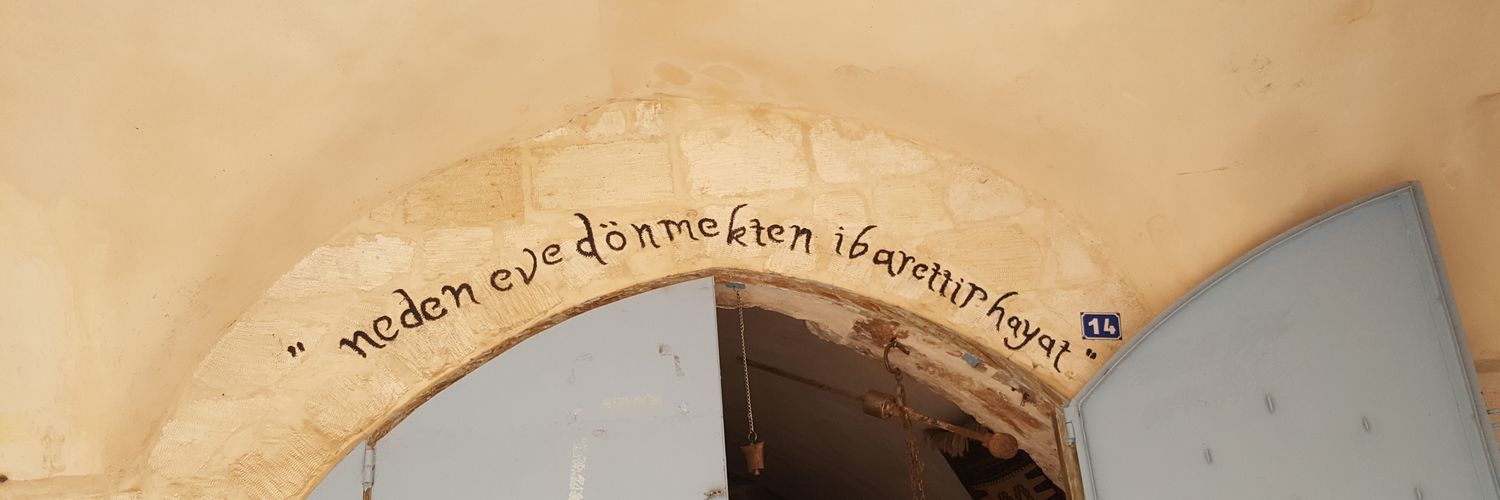 " neden eve dönmekten ibarettir hayat "
14